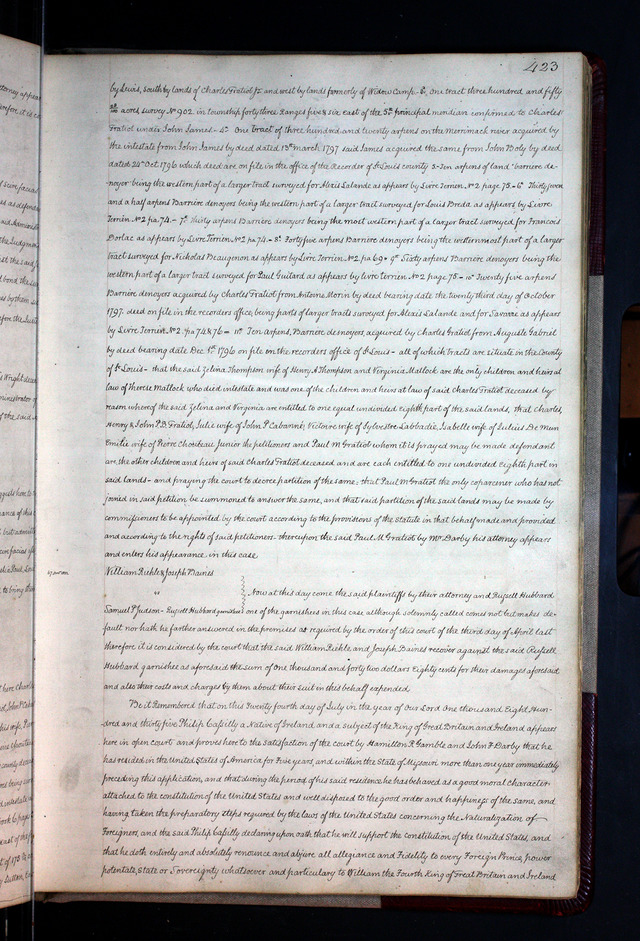 423
by Lewis, south by lands of Charles Gratiot Jr and west by lands formerly of Widow Camp - 6, one tract three hundred and fifty
acres, survey No 902. in township forty three Ranges five & six east of the 5th principal meridian confirmed to Charles
Gratiot under John James - 4th One tract of three hundred and twenty arpens on the Merrimack river acquired by
the intestate from John James by deed dated 13th march 1797 said James acquired the same from John Boly by deed
dated 24th Oct. 1796 which deed are on file in the office of the Recorder of St Louis county 5- Ten arpens of land "barriere de-
noyer" being the western part of a larger tract surveyed for Alexis Lalande as appears by Livre Terrien No 2 page 75.- 6th Thirty seven
and a half arpens Barriere denoyers being the western part of a larger tract surveyed for Louis Breda as appears by Livre
Terrien No 2 pa. 74. - 7th Thirty arpens Barriere denoyers being the most western part of a larger tract surveyed for Francois
Dorlac as appears by Livre Terrien No 2 pa 74. - 8th Forty five arpens Barriere denoyers being the western most part of a larger
tract surveyed for Nicholas Beaugenon as appears by Livre Terrien No 2 pa 69. 9th Sixty arpens Barriere denoyers being the
western part of a larger tract surveyed for Paul Guitard as appears by livre terrien No 2 page 75. - 10th Twenty five arpens
Barriere denoyers acquired by Charles Gratiot from Antoine Morin by deed bearing date the twenty third day of October
1797. deed on file in the recorders office, being parts of larger tracts surveyed for Alexis Lalande and for Savarre as appears
by Livre Terrien No 2. pa 74 & 76 = 11th Ten arpens, Barriere desnoyers, acquired by Charles Gratiot from Auguste Gabriel
by deed bearing date Dec 1st 1796 on file on the recorders office of St Louis - all of which tracts are situate in the County
of St Louis - that the said Zelina Thompson wife of Henry A Thompson and Virginia Mallock are the only children and heirs at
law of Therese Mallock who died intestate and was one of the children and heirs at law of said Charles Gratiot deceased by
reason whereof the said Zelina and Virginia are entitled to one equal undivided eighth part of the said lands, that Charles,
Henry & John P. B. Gratiot, Julie wife of John P. Cabanné, Victoire wife of Sylvestre Labbadie, Isabelle wife of Julius De Mun
Emilie wife of Pierre Chouteau Junior the petitioners and Paul M Gratiot whom it is prayed may be made defendant
are the other children and heirs of said Charles Gratiot deceased and are each entitled to one undivided Eighth part in
said lands - and praying the court to decree partition of the same: that Paul M Gratiot the only coparcener who has not
joined in said petition be summoned to answer the same, and that said partition of the said lands may be made by
commissioners to be appointed by the court according to the provisions of the statute in that behalf made and provided
and according to the rights of said petitioners - thereupon the said Paul M. Gratiot by Mr Darby his attorney appears
and enters his appearance in this case
William Riehle & Joseph Baines
vs Now at this day come the said plaintiffs by their attorney and Russell Hubbard
Samuel P. Judson - Russell Hubbard garnishee one of the garnishees in this case although solemnly called comes not but makes de-
fault nor hath he farther answered in the premises as required by the order of this court of the third day of April last
therefore it is considered by the court that the said William Riehle and Joseph Baines recover against the said Russell
Hubbard garnishee as aforesaid the sum of One thousand and forty two dollars Eighty cents for their damages aforesaid
and also their costs and charges by them about their suit in this behalf expended.
Be it Remembered that on this Twenty fourth day of July in the year of our Lord One thousand Eight Hun-
dred and thirty five Philip Cassilly a Native of Ireland and a subject of the King of Great Britain and Ireland, appears
here in open court and proves here to the Satisfaction of the court by Hamilton R Gamble and John F Darby that he
has resided in the United States of America for Five years, and within the State of Missouri more than one year immediately
preceding this application, and that during the period of his said residence he has behaved as a good moral character
attached to the constitution of the United States and well disposed to the good order and happiness of the same, and
having taken the preparatory steps required by the laws of the United States concerning the Naturalization of
Foreigners, and the said Philip Cassilly declaring upon oath that he will support the constitution of the United States, and
that he doth entirely and absolutely renounce and abjure all allegiance and Fidelity to every Foreign Prince, power
potentate, State or Sovereignty whatsoever and particularly to William the Fourth King of Great Britain and Ireland